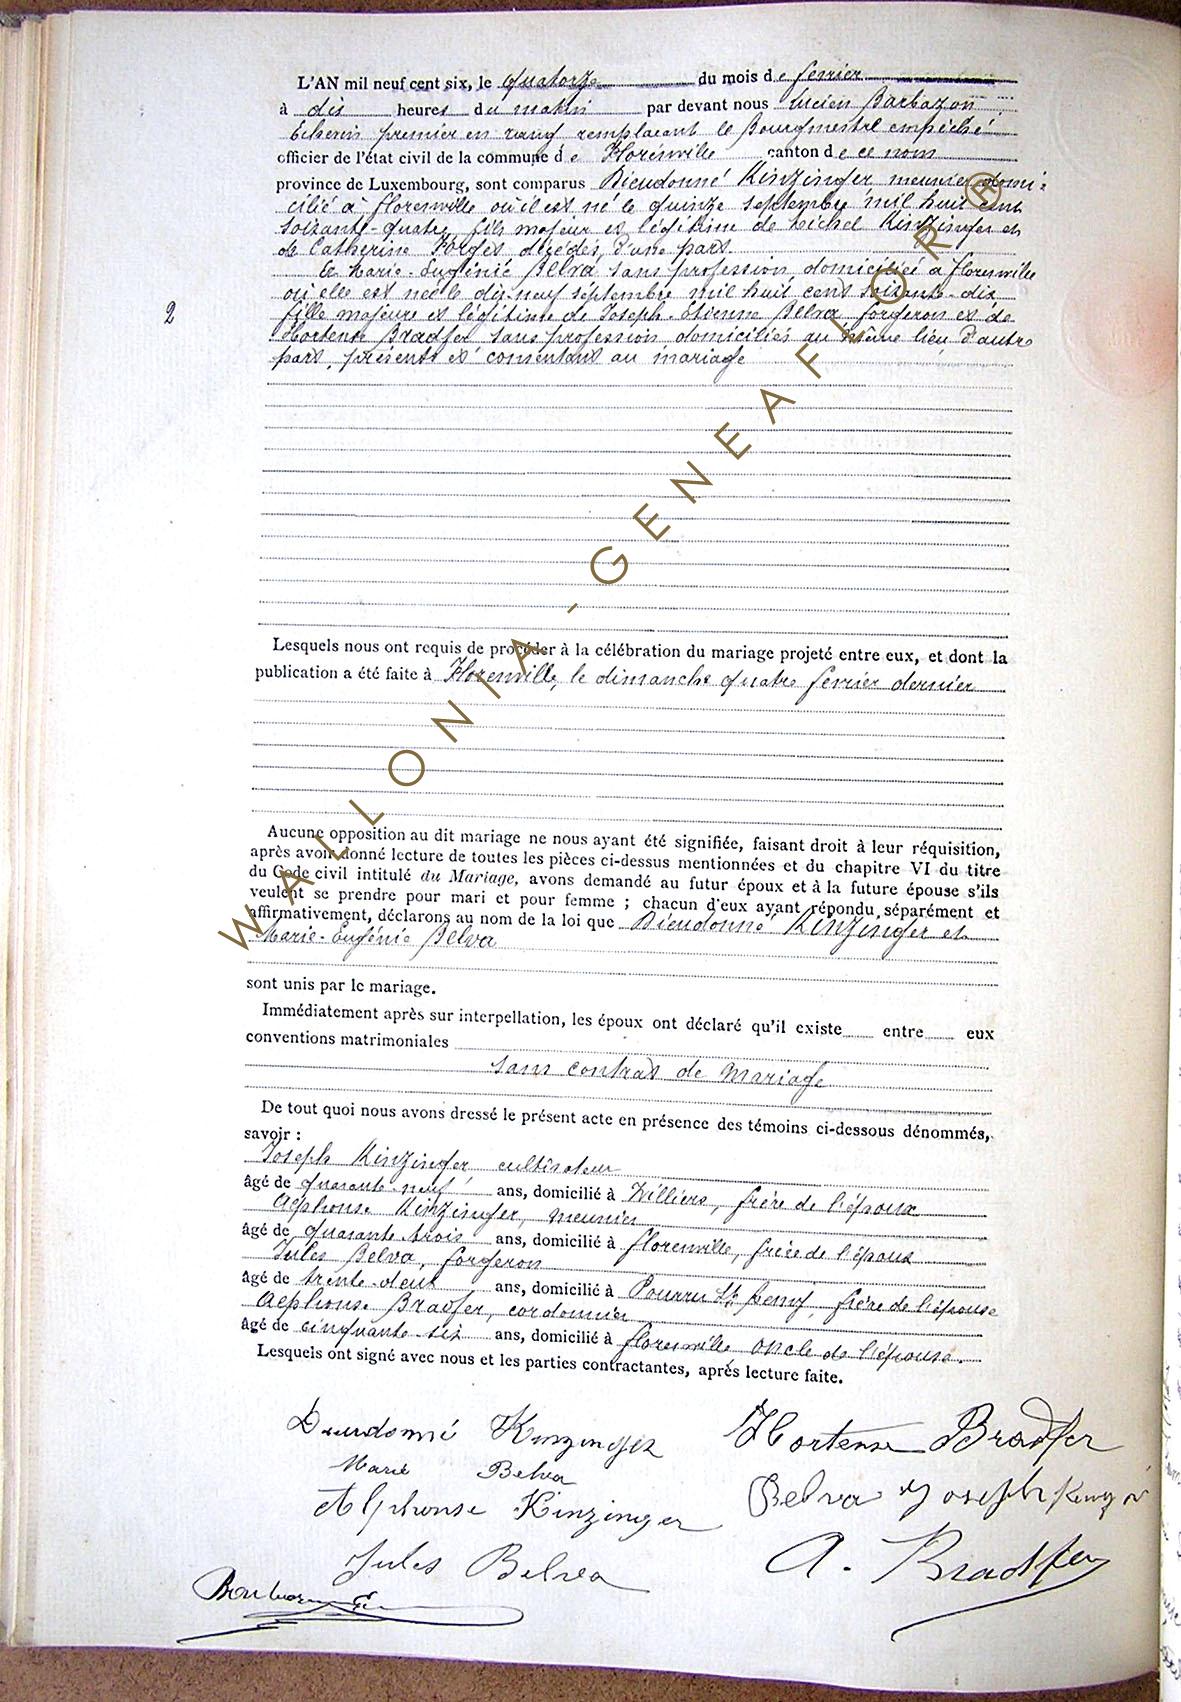 L'AN mil neuf cent six, le quatorze du mois de fevrier
à dix heures du matin par devant nous Lucien Barbazon
Echevin premier en rang remplacant le Bourgmestre empêché
officier de l'état civil de la commune de Florenville canton de ce nom
province de Luxembourg, sont comparus Dieudonné Kinzinger meunier domi-
cilié à Florenville où il est né le quinze septembre mil huit cent
soixante-quatre, fils majeur et légitime de Michel Kinzinger et
de Catherine Forges décédés, d'une part.
Et Marie-Eugénie Belva sans profession domiciliée à Florenville
où elle est née le dix-neuf septembre mil huit cent soixante-dix
2
fille majeure et légitime de Joseph-Etienne Belva forgeron et de
Hortense Bradfer sans profession domiciliés au même lieu d'autre
part, présents et consentant au mariage
Lesquels nous ont requis de procéder à la célébration du mariage projeté entre eux, et dont la
publication a été faite à Florenville, le dimanche quatre fevrier dernier
Aucune opposition au dit mariage ne nous ayant été signifiée, faisant droit à leur réquisition,
après avoir donné lecture de toutes les pièces ci-dessus mentionnées et du chapitre VI du titre
du Code civil intitulé du Mariage, avons demandé au futur époux et à la future épouse s'ils
veulent se prendre pour mari et pour femme ; chacun d'eux ayant répondu séparément et
affirmativement, déclarons au nom de la loi que Dieudonné Kinzinger et
Marie-Eugénie Belva
sont unis par le mariage.
Immédiatement après sur interpellation, les époux ont déclaré qu'il existe entre eux
conventions matrimoniales
sans contrat de Mariage
De tout quoi nous avons dressé le présent acte en présence des témoins ci-dessous dénommés,
savoir :
Joseph Kinzinger cultivateur
âgé de quarante-neuf ans, domicilié à Williers, frère de l'époux
Alphonse Kinzinger, meunier
âgé de quarante-trois ans, domicilié à Florenville, frère de l'époux
Jules Belva, forgeron
âgé de trente-deux ans, domicilié à Pourru St Remy, frère de l'épouse
Alphonse Bradfer, cordonnier
âgé de cinquante-six ans, domicilié à Florenville oncle de l'épouse.
Lesquels ont signé avec nous et les parties contractantes, après lecture faite.
Dieudonné Kinzinger Hortense Bradfer
Marie Belva
Belva Joseph
Alphonse Kinzinger
Jules Belva A. Bradfer
WALLONIA-GENEAFLOR ®